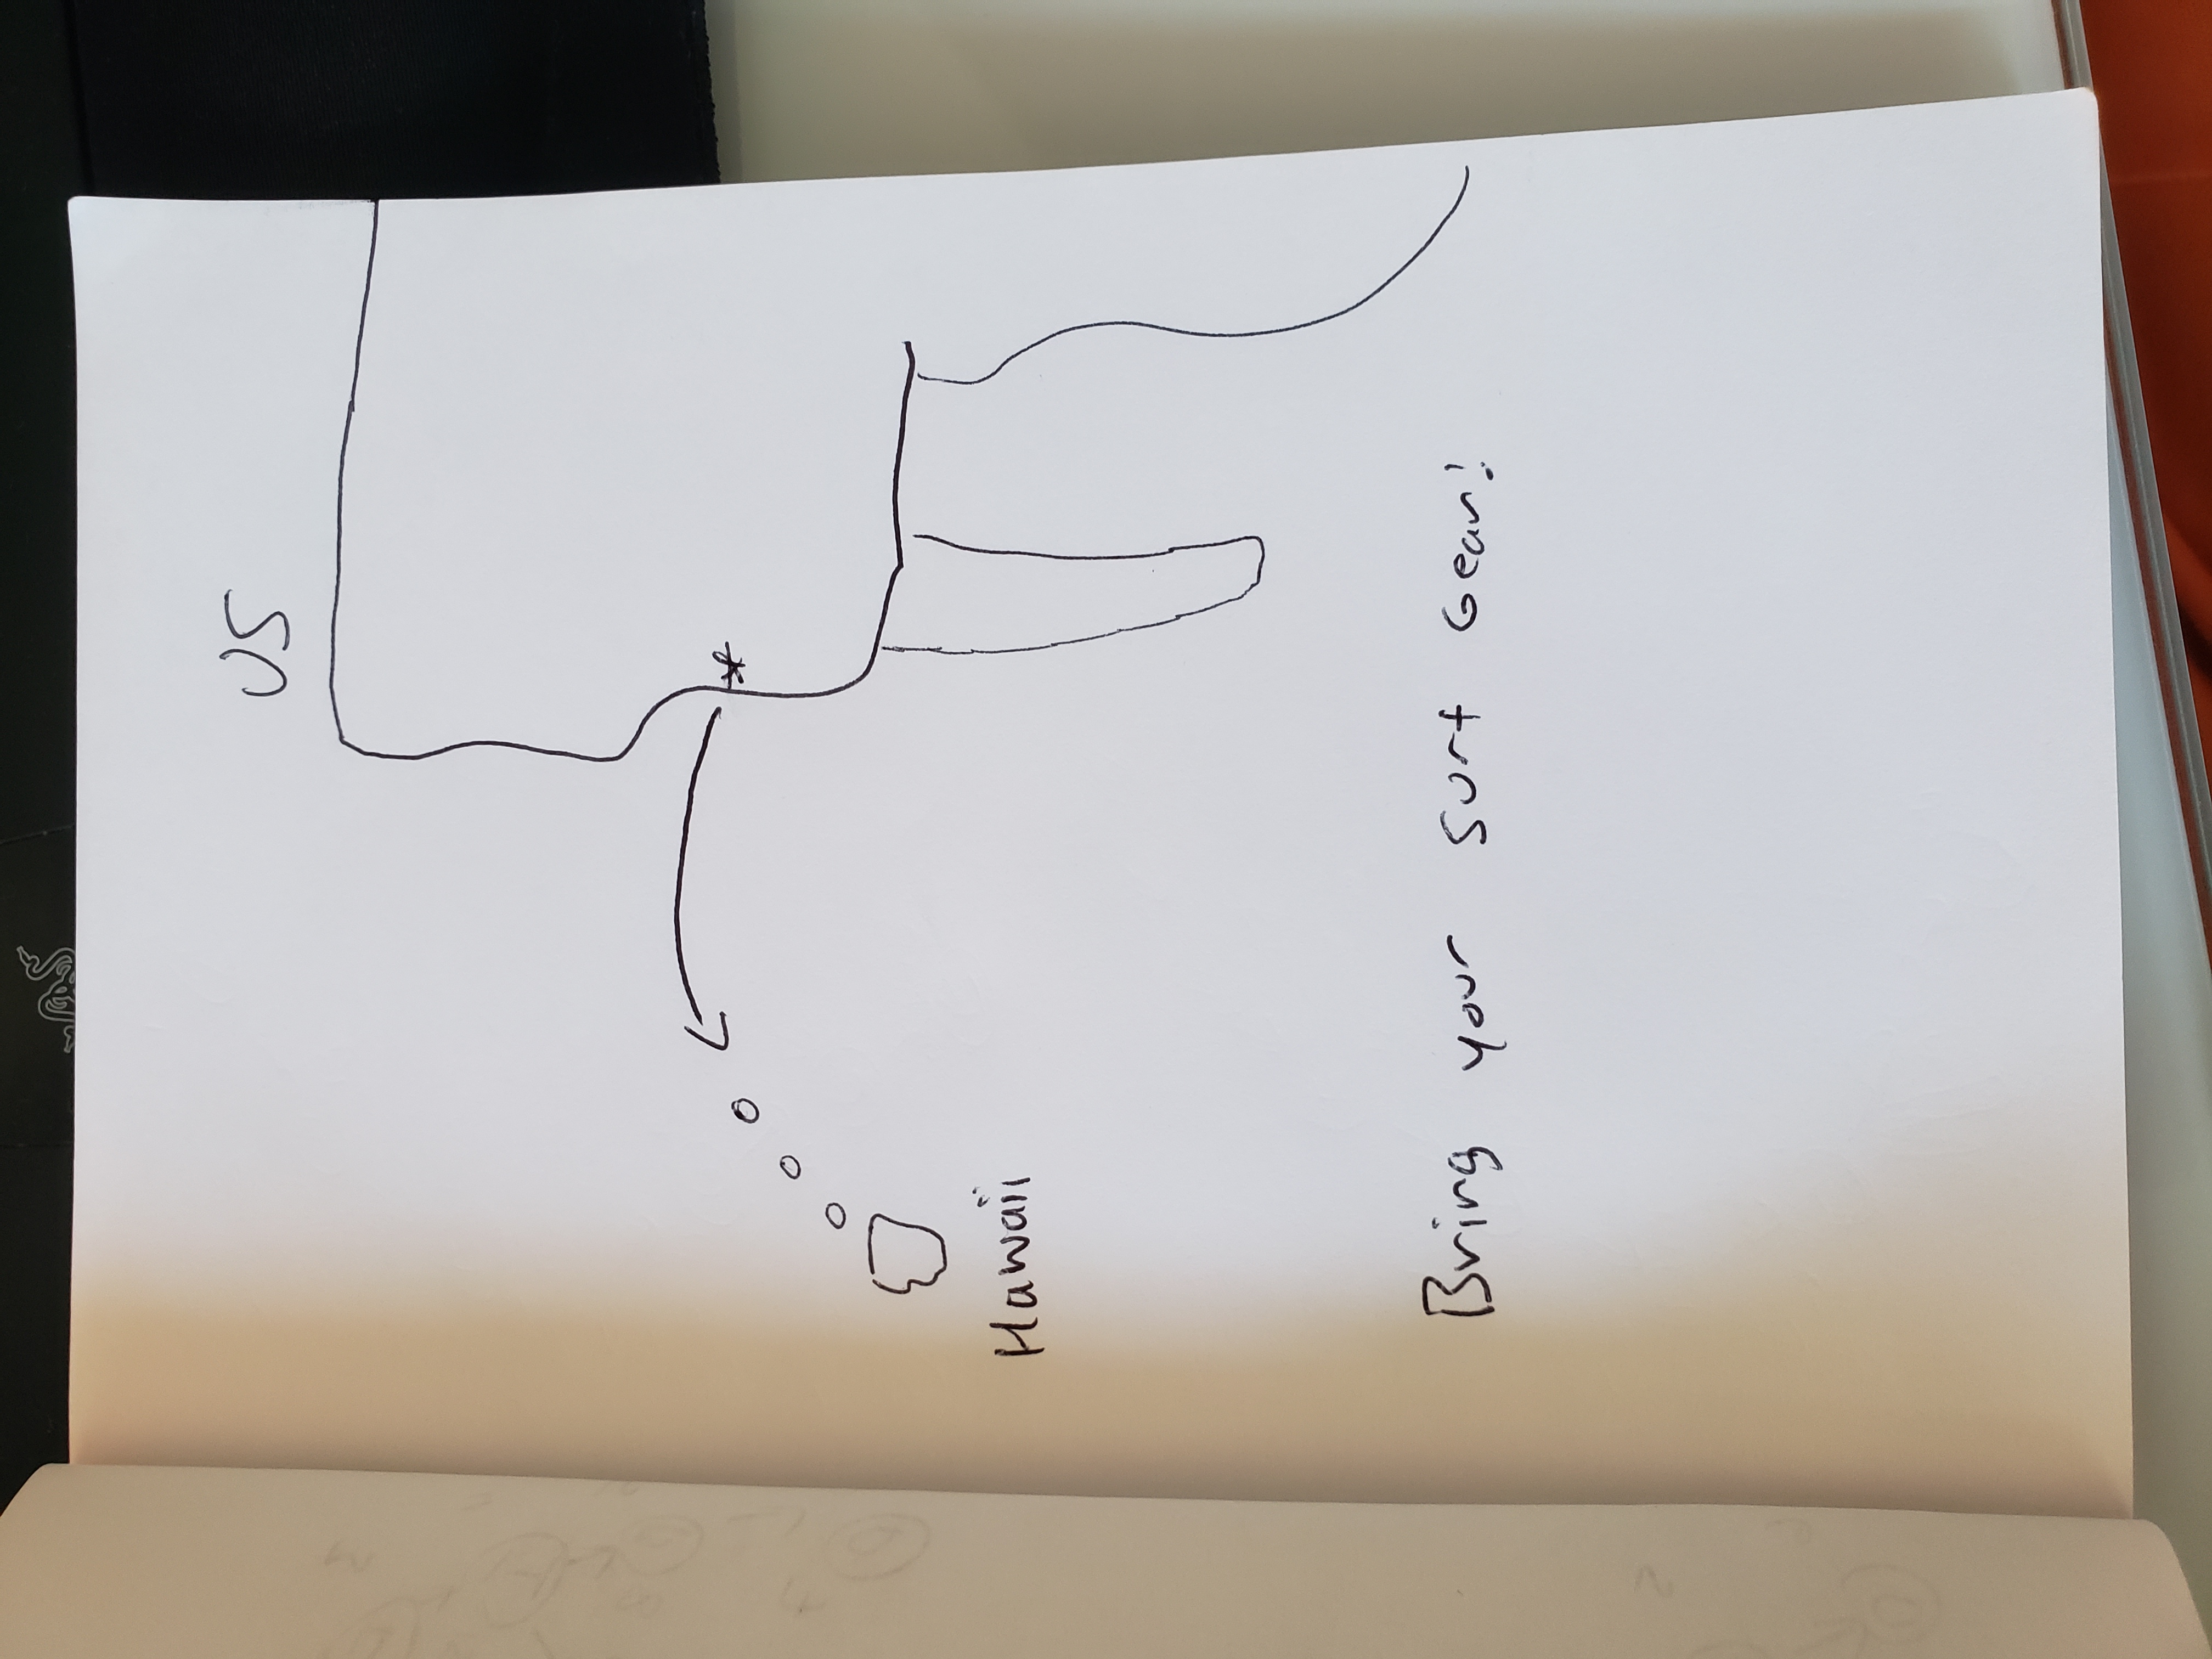 US
Hawaii
Bring your surf Gear!